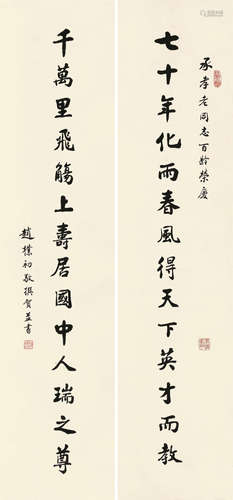 承孝老同志百齡榮慶
七十年化雨春風得天下英才而教
千萬里飛觴上壽居國中人瑞之尊
趙樸初敬撰賀並書